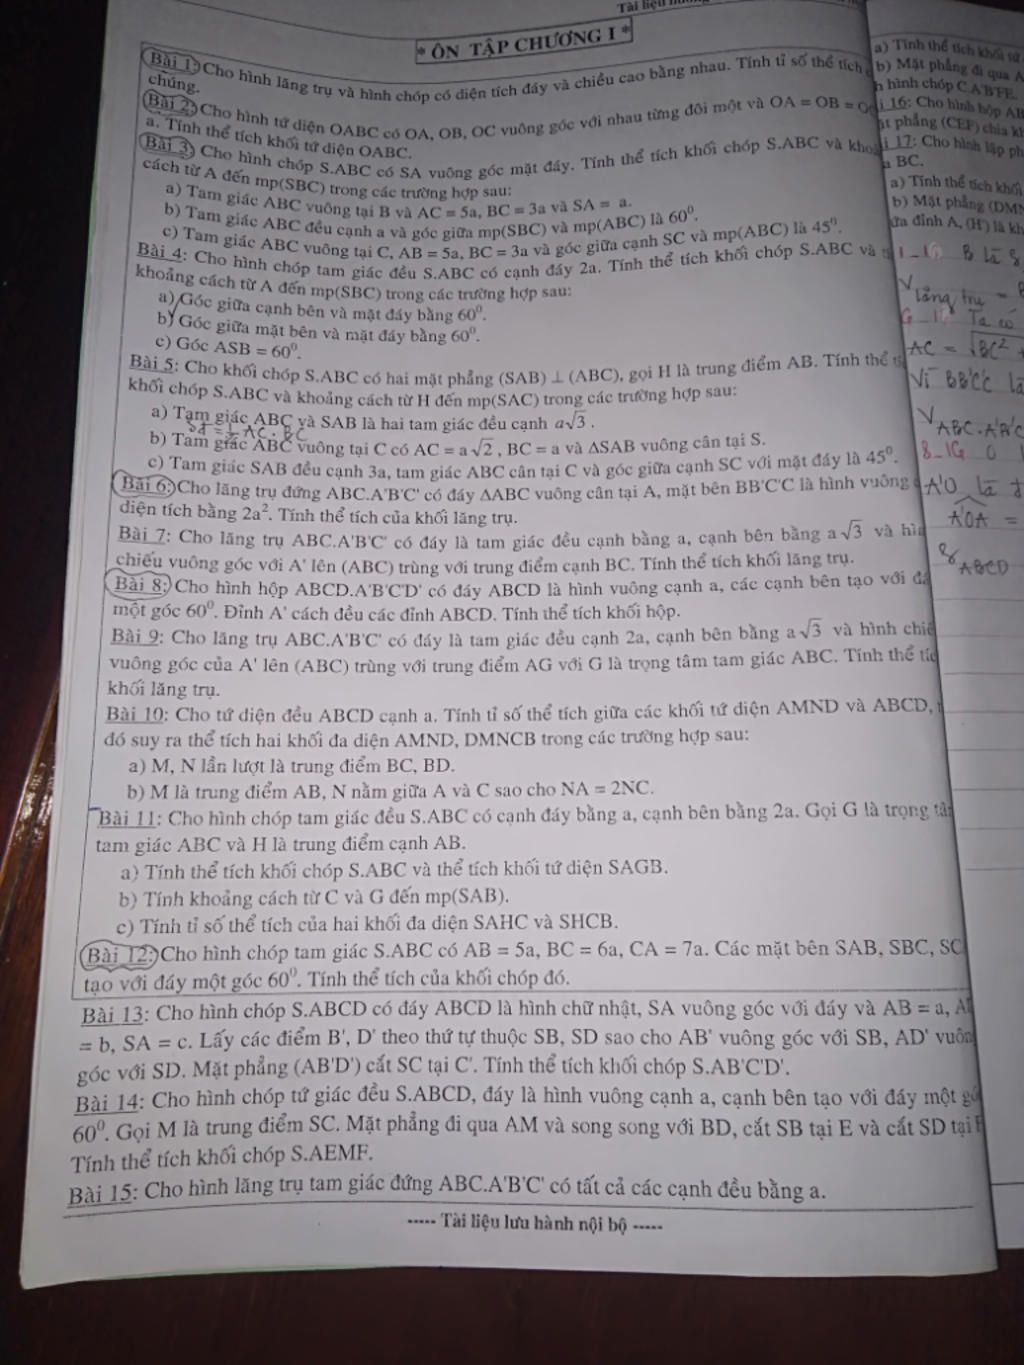 Tài liệu
* ÔN TẬP CHƯƠNG I *
Bài 1: Cho hình lăng trụ và hình chóp có diện tích đáy và chiều cao bằng nhau. Tính tỉ số thể tích
chúng.
Bài 2: Cho hình tứ diện OABC có OA, OB, OC vuông góc với nhau từng đôi một và OA = OB =
a. Tính thể tích khối tứ diện OABC.
Bài 3: Cho hình chóp S.ABC có SA vuông góc mặt đáy. Tính thể tích khối chóp S.ABC và
cách từ A đến mp(SBC) trong các trường hợp sau:
a) Tam giác ABC vuông tại B và AC = 5a, BC = 3a và SA = a.
b) Tam giác ABC đều cạnh a và góc giữa mp(SBC) và mp(ABC) là 60⁰.
c) Tam giác ABC vuông tại C, AB = 5a, BC = 3a và góc giữa cạnh SC và mp(ABC) là 45⁰.
Bài 4: Cho hình chóp tam giác đều S.ABC có cạnh đáy 2a. Tính thể tích khối chóp S.ABC và
khoảng cách từ A đến mp(SBC) trong các trường hợp sau:
a) Góc giữa cạnh bên và mặt đáy bằng 60⁰.
b) Góc giữa mặt bên và mặt đáy bằng 60⁰.
c) Góc ASB = 60⁰.
Bài 5: Cho khối chóp S.ABC có hai mặt phẳng (SAB) ⊥ (ABC), gọi H là trung điểm AB. Tính thể
khối chóp S.ABC và khoảng cách từ H đến mp(SAC) trong các trường hợp sau:
a) Tam giác ABC và SAB là hai tam giác đều cạnh a√3.
Sđ = ½ AC . BC
b) Tam giác ABC vuông tại C có AC = a√2, BC = a và ΔSAB vuông cân tại S.
c) Tam giác SAB đều cạnh 3a, tam giác ABC cân tại C và góc giữa cạnh SC với mặt đáy là 45⁰.
Bài 6: Cho lăng trụ đứng ABC.A'B'C' có đáy ΔABC vuông cân tại A, mặt bên BB'C'C là hình vuông
diện tích bằng 2a². Tính thể tích của khối lăng trụ.
Bài 7: Cho lăng trụ ABC.A'B'C' có đáy là tam giác đều cạnh bằng a, cạnh bên bằng a√3 và
chiếu vuông góc với A' lên (ABC) trùng với trung điểm cạnh BC. Tính thể tích khối lăng trụ.
Bài 8: Cho hình hộp ABCD.A'B'C'D' có đáy ABCD là hình vuông cạnh a, các cạnh bên tạo với
một góc 60⁰. Đỉnh A' cách đều các đỉnh ABCD. Tính thể tích khối hộp.
Bài 9: Cho lăng trụ ABC.A'B'C' có đáy là tam giác đều cạnh 2a, cạnh bên bằng a√3 và hình
vuông góc của A' lên (ABC) trùng với trung điểm AG với G là trọng tâm tam giác ABC. Tính thể
khối lăng trụ.
Bài 10: Cho tứ diện đều ABCD cạnh a. Tính tỉ số thể tích giữa các khối tứ diện AMND và ABCD,
đó suy ra thể tích hai khối đa diện AMND, DMNCB trong các trường hợp sau:
a) M, N lần lượt là trung điểm BC, BD.
b) M là trung điểm AB, N nằm giữa A và C sao cho NA = 2NC.
Bài 11: Cho hình chóp tam giác đều S.ABC có cạnh đáy bằng a, cạnh bên bằng 2a. Gọi G là trọng
tam giác ABC và H là trung điểm cạnh AB.
a) Tính thể tích khối chóp S.ABC và thể tích khối tứ diện SAGB.
b) Tính khoảng cách từ C và G đến mp(SAB).
c) Tính tỉ số thể tích của hai khối đa diện SAHC và SHCB.
Bài 12: Cho hình chóp tam giác S.ABC có AB = 5a, BC = 6a, CA = 7a. Các mặt bên SAB, SBC, SC
tạo với đáy một góc 60⁰. Tính thể tích của khối chóp đó.
Bài 13: Cho hình chóp S.ABCD có đáy ABCD là hình chữ nhật, SA vuông góc với đáy và AB = a,
= b, SA = c. Lấy các điểm B', D' theo thứ tự thuộc SB, SD sao cho AB' vuông góc với SB, AD' vuông
góc với SD. Mặt phẳng (AB'D') cắt SC tại C'. Tính thể tích khối chóp S.AB'C'D'.
Bài 14: Cho hình chóp tứ giác đều S.ABCD, đáy là hình vuông cạnh a, cạnh bên tạo với đáy một
60⁰. Gọi M là trung điểm SC. Mặt phẳng đi qua AM và song song với BD, cắt SB tại E và cắt SD tại
Tính thể tích khối chóp S.AEMF.
Bài 15: Cho hình lăng trụ tam giác đứng ABC.A'B'C' có tất cả các cạnh đều bằng a.
----- Tài liệu lưu hành nội bộ -----
a) Tính thể tích khối tứ
b) Mặt phẳng đi qua A
hình chóp C.A'B'FE.
16: Cho hình hộp AB
phẳng (CEF) chia
17: Cho hình lập
BC.
a) Tính thể tích khối
b) Mặt phẳng (DMN
đỉnh A, (H') là
1_1G B là 8
V lăng trụ =
G_1G Ta có
AC = √BC²
Vì BB'C'C là
V ABC.A'B'C
8_1G O
A'O là
A'OA =
S ABCD